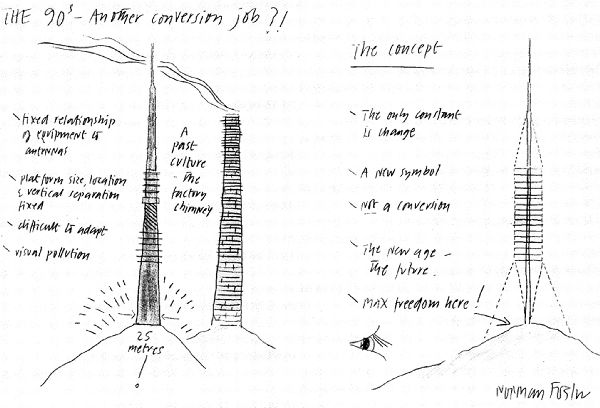 THE 90s - Another conversion job ?!
fixed relationship
of equipment to
antennas
platform size, location
& vertical separation
fixed
difficult to adapt
visual pollution
A
past
culture
- the
factory
chimney
25
metres
!
The concept
The only constant
is change
A new symbol
NOT a conversion
The new age -
the future.
max freedom here !
NORMAN FOSTER